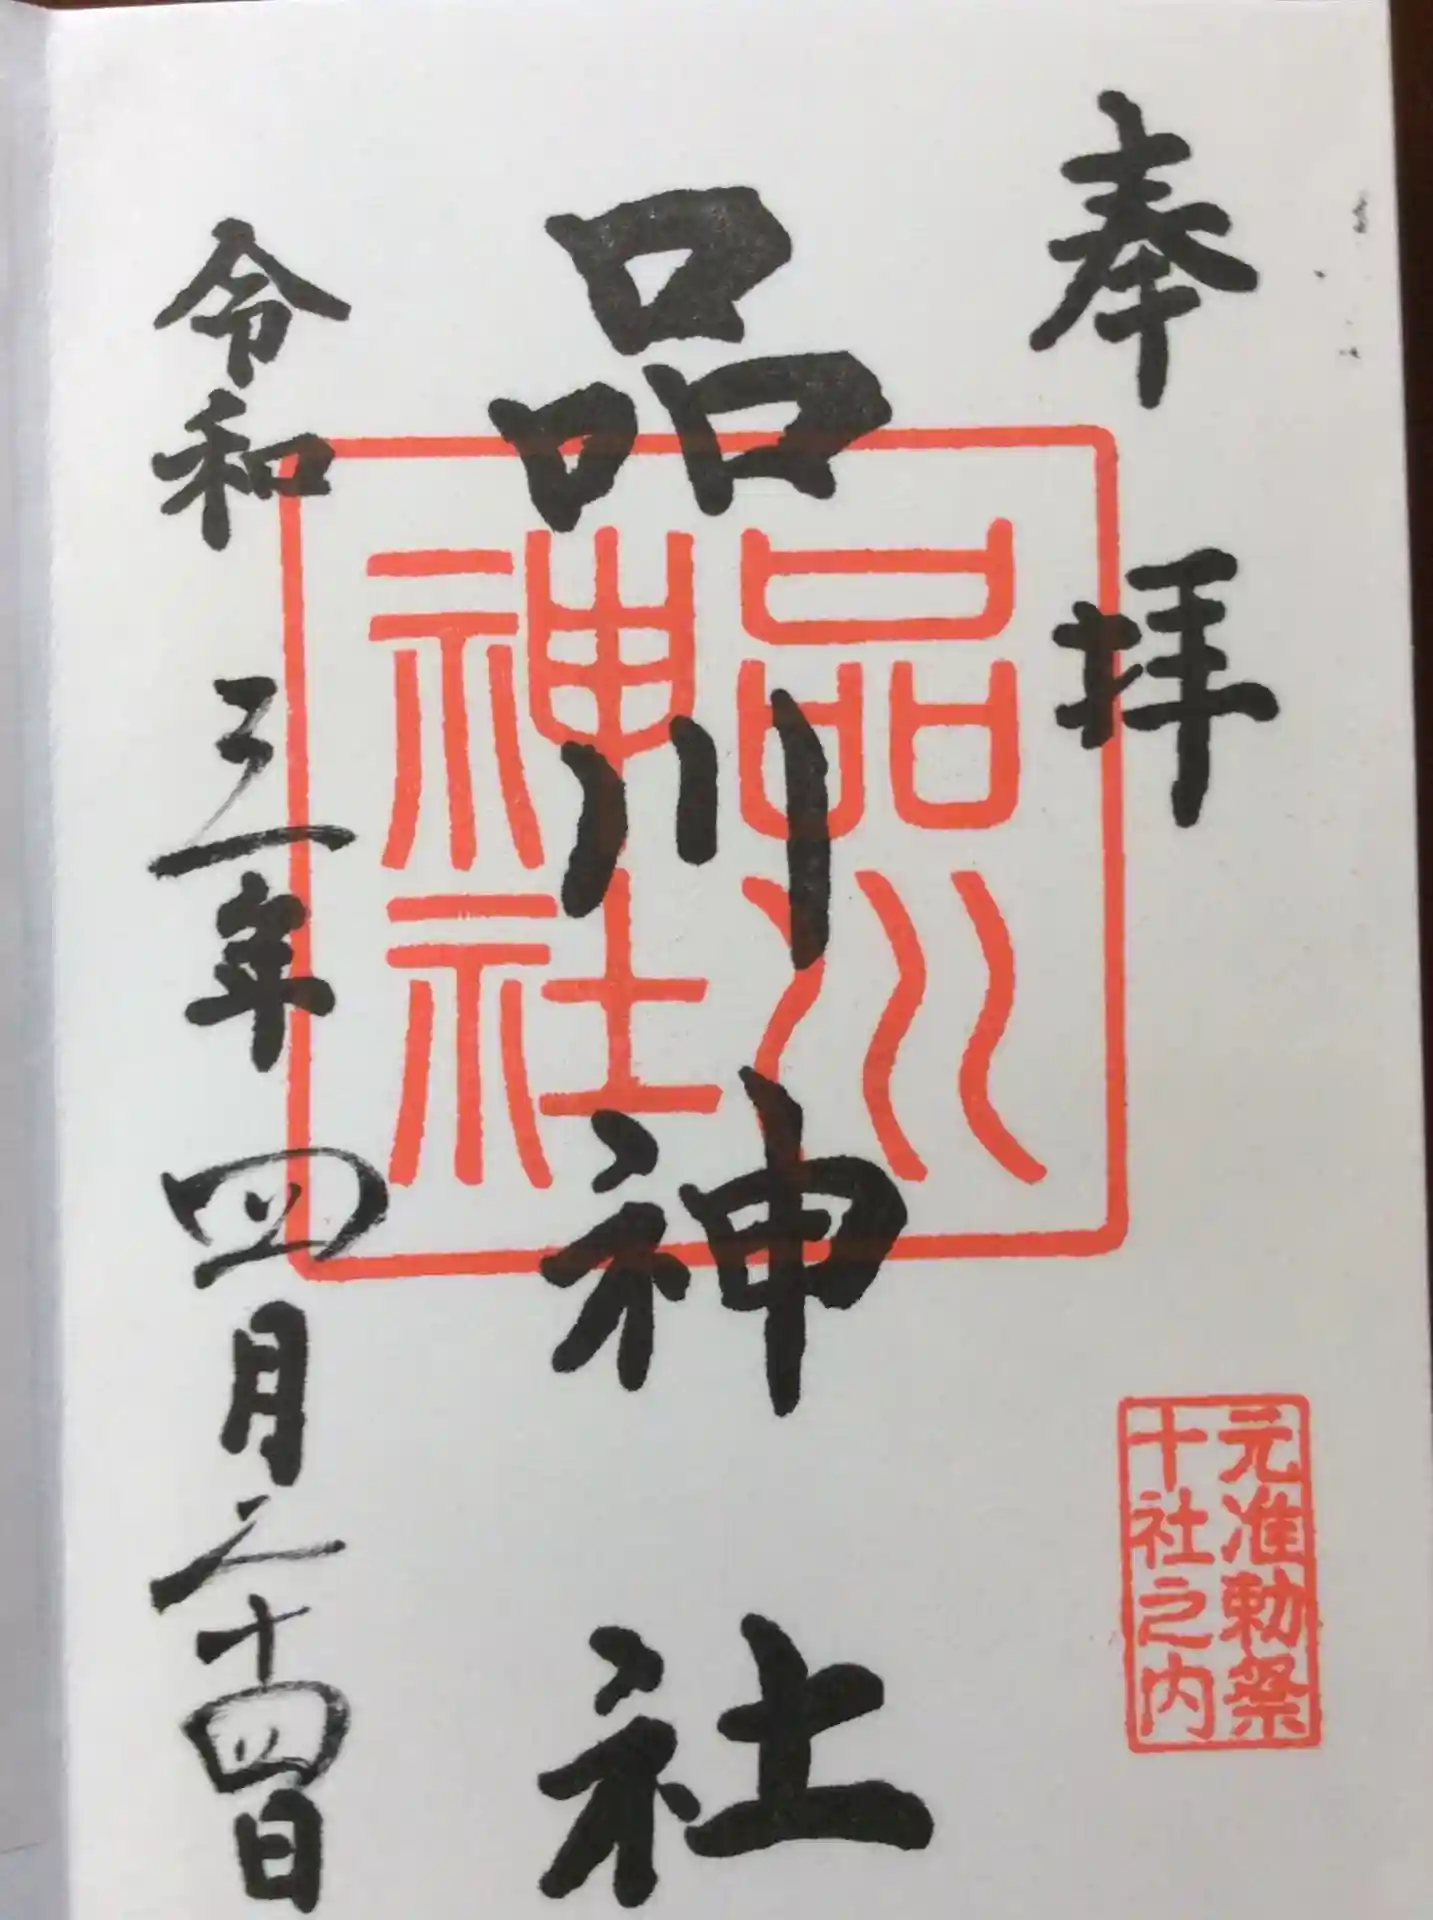 奉拝
元准勅祭
十社之内
品川神社
品川
神社
令和三年四月二十四日